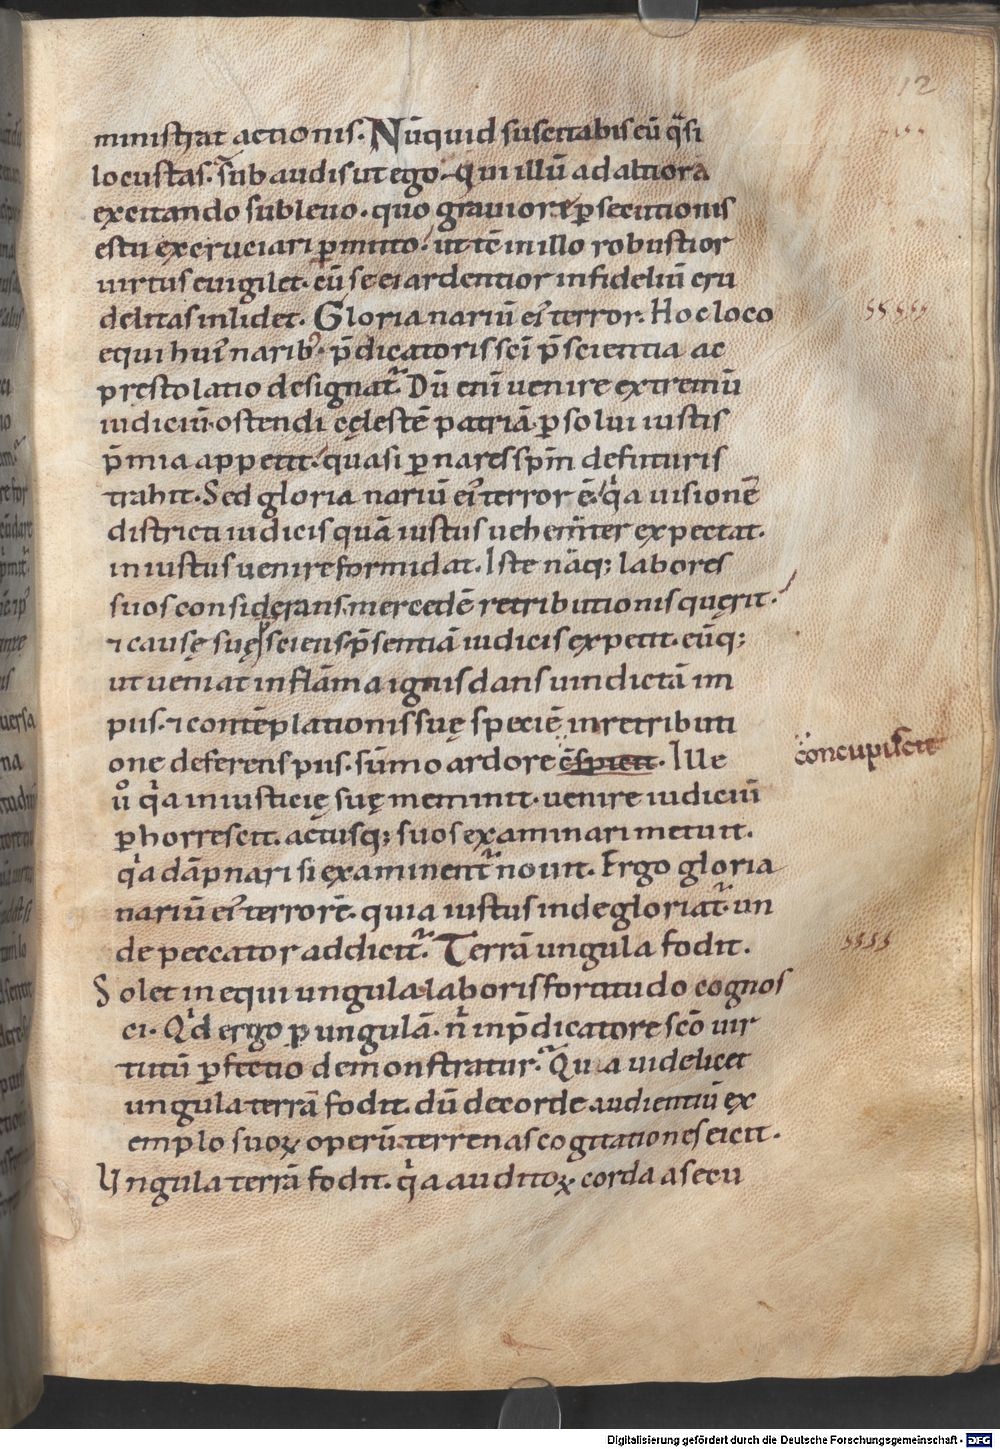 12
ministrat actionis. Nūquid suscitabis eū q̄si
locustas. sub audis ut ego. qui illū ad altiora
excitando subleuo. quo grauiore p̱secutionis
estu excruciari p̱mitto. ut tē in illo robustior
uirtus euigilet. cū se ei ardentior infideliū cru
delitas inlidet. Gloria nariū eiꝰ terror. Hoc loco
equi huiꝰ naribꝰ. p̄dicatoris sc̄i p̄scientia ac
prestolatio designat᷑. Dū enī uenire extremū
iudiciū. ostendi cęlestē patriā. p̱solui iustis
p̄mia appetit. quasi p̱ nares sp̄m de futuris
trahit. Sed gloria nariū eiꝰ terror ē. q̄a uisionē
districti iudicis quā iustus uehem̄ter expectat.
iniustus uenire formidat. Iste nāq; labores
suos considerans. mercedē retributionis quęrit.
⁊ causę suę sciens p̄sentiā iudicis expetit. cūq;
ut ueniat in flāma ignis dans uindictā im
piis. ⁊ contēplationis suę speciē in retributi
one deferens piis. sūmo ardore c̄spicit. Ille
concupiscit
u͛o q̄a iniusticię suę meminit. uenire iudiciū
p̱horrescit. actusq; suos examinari metuit.
q̄a dāpnari si examinent᷑ nouit. Ergo gloria
nariū eiꝰ terror ē. quia iustus inde gloriat᷑. un
de peccator addicit᷑. Terrā ungula fodit.
Solet in equi ungula laboris fortitudo cognos
ci. Qͥd ergo p̱ ungulā. n̄ in p̄dicatore sc̄o uir
tutū p̱fectio demonstratur. Quia uidelicet
ungula terrā fodit. dū de corde audientiū ex
emplo suoꝝ operū terrenas cogitationes eicit.
Ungula terrā fodit. q̄a auditoꝝ corda a secu
Digitalisierung gefördert durch die Deutsche Forschungsgemeinschaft - DFG